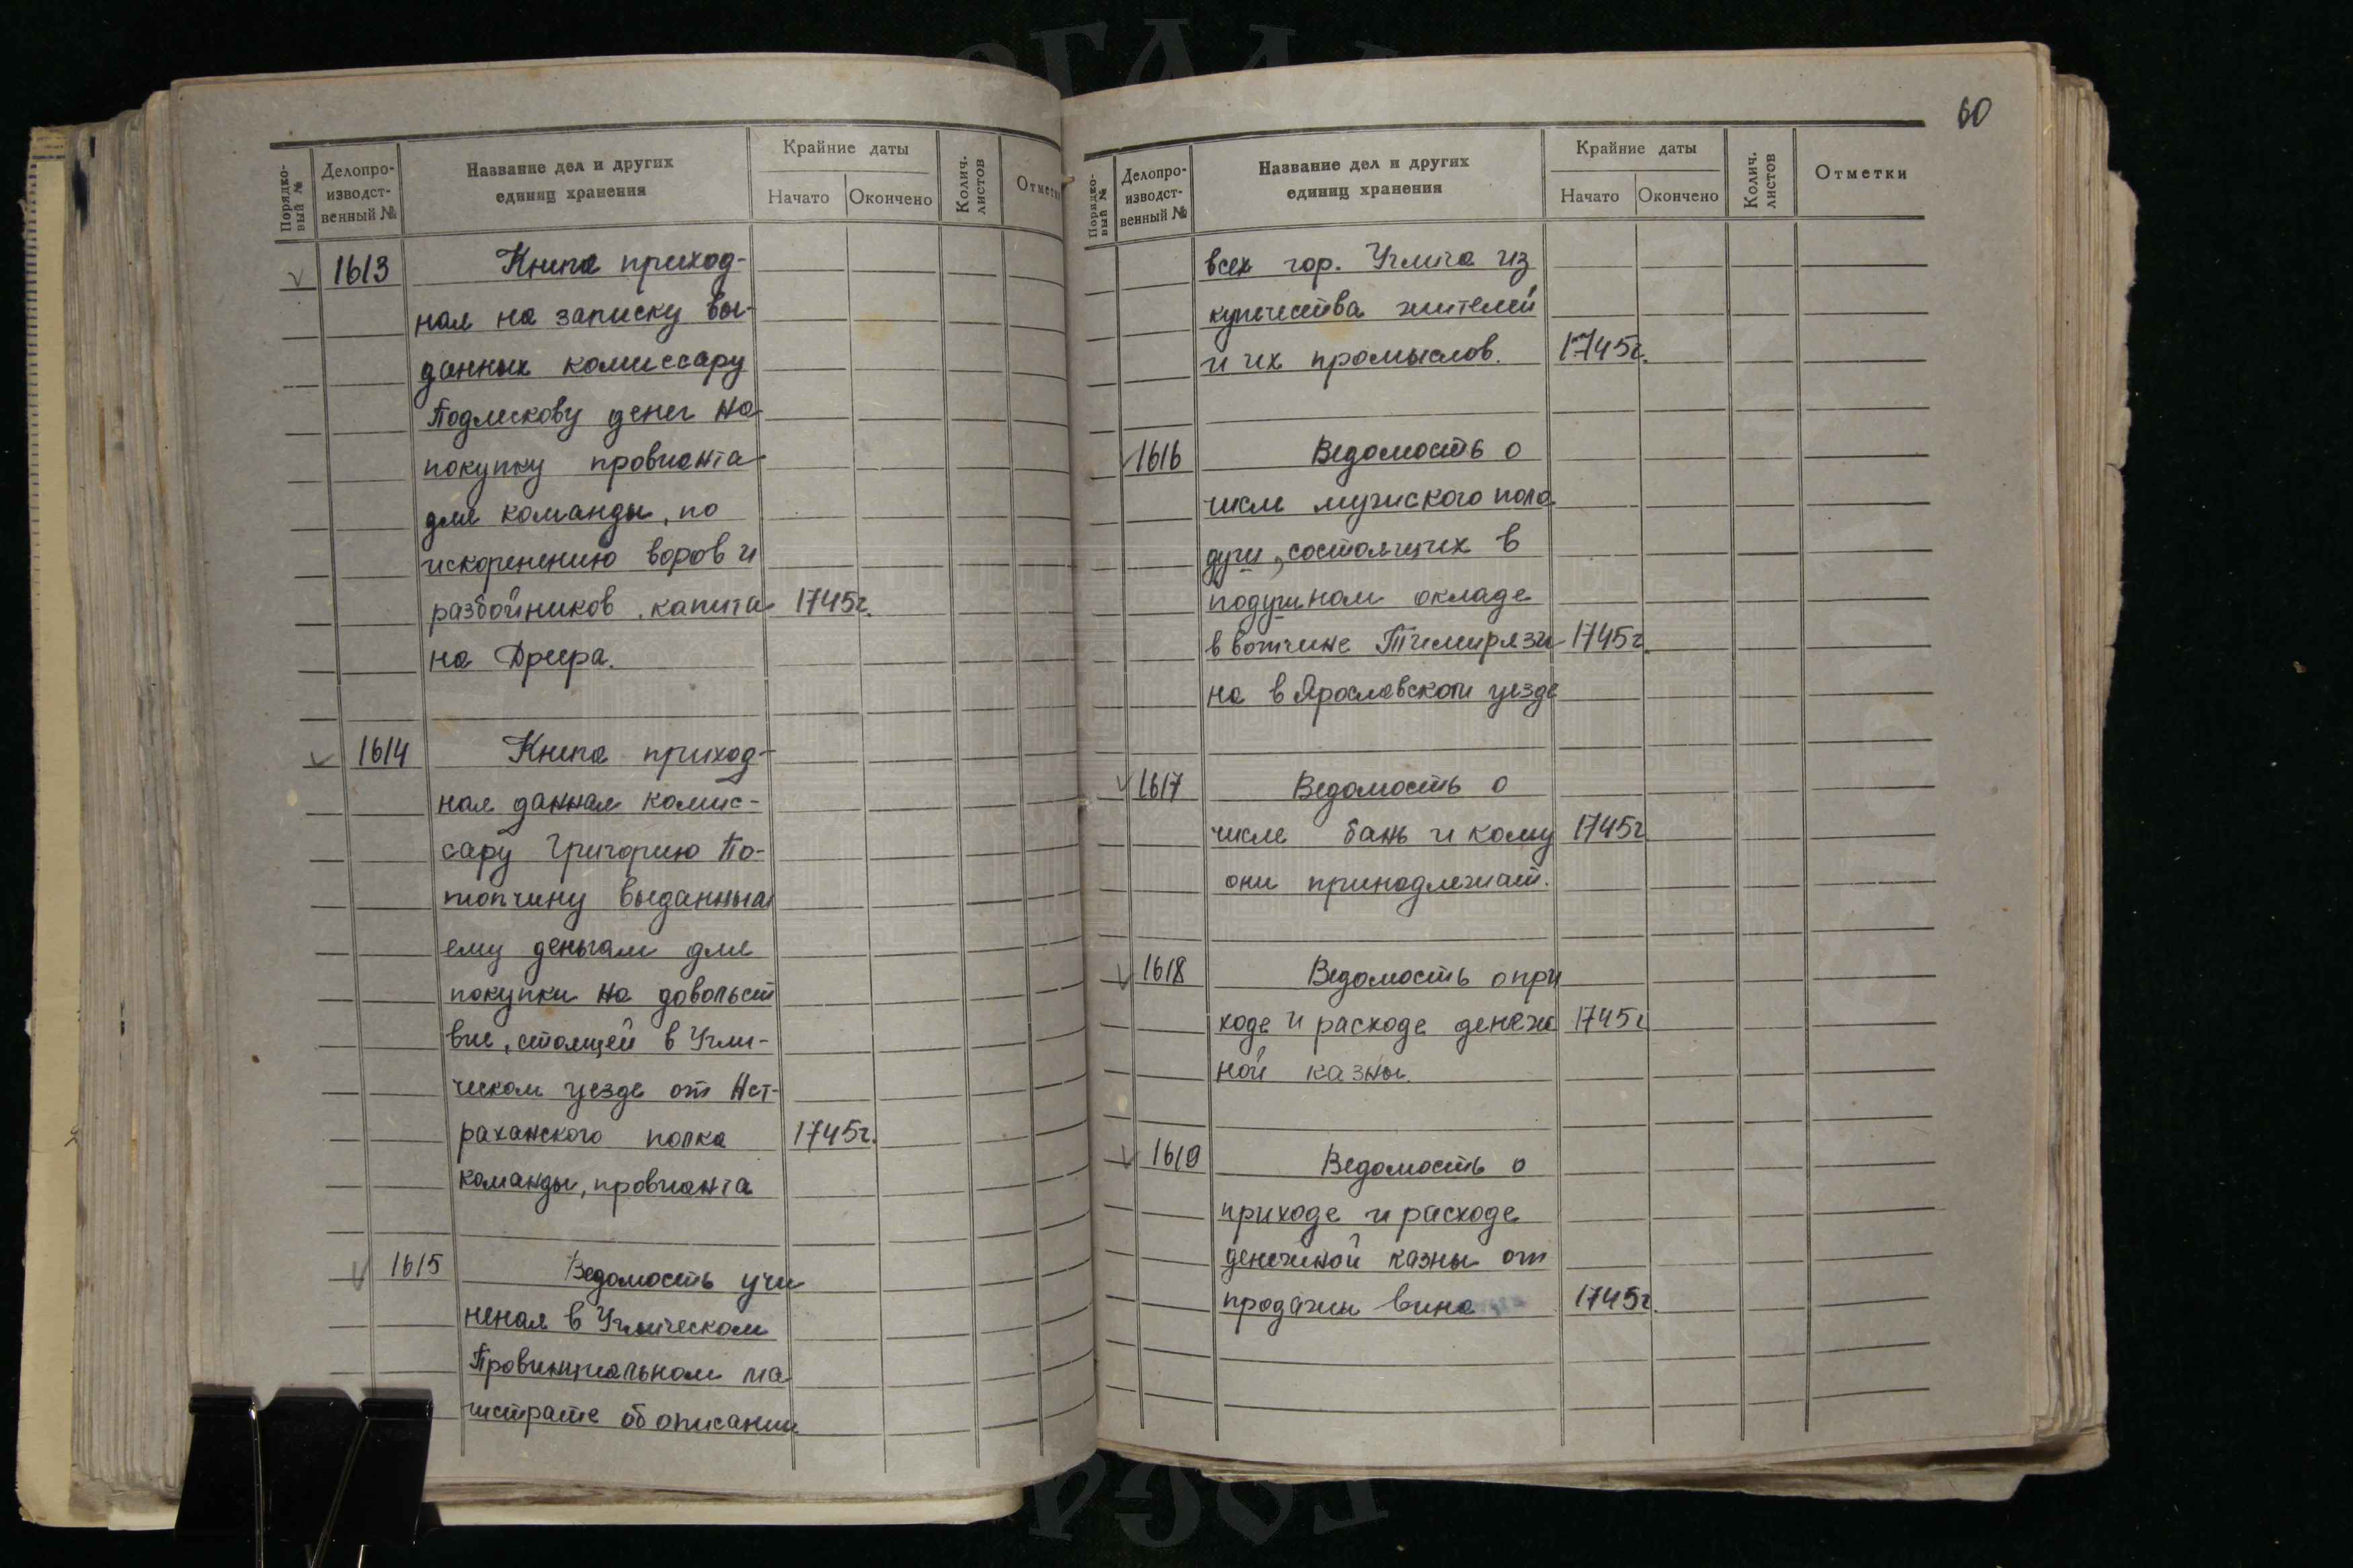 Порядко-
вый №
Делопро-
изводст-
венный №
Название дел и других
единиц хранения
Крайние даты
Начато
Окончено
Колич.
листов
Отметки
1613
Книга приход-
ная на записку вы-
данных комиссару
Подлескову денег на
покупку провианта
для команды, по
искоренению воров и
разбойников, капита
1745г.
на Дреера.
1614
Книга приход-
ная данная комис-
сару Григорию По-
топчину выданным
ему деньгам для
покупки на довольст
вие, стоящей в Угли-
ческом уезде от Аст-
раханского полка
1745г.
команды, провианта
1615
Ведомость учи
неная в Угличском
Провинциальном ма
гистрате об описании
60
Порядко-
вый №
Делопро-
изводст-
венный №
Название дел и других
единиц хранения
Крайние даты
Начато
Окончено
Колич.
листов
Отметки
всех гор. Углича из
купечества жителей
и их промыслов.
1745г.
1616
Ведомость о
числе мужского пола
душ, состоящих в
подушном окладе
в вотчине Тимирязи
1745г.
на в Ярославском уезде
1617
Ведомость о
числе бань и кому
1745г
они принадлежат.
1618
Ведомость о при
ходе и расходе денеж
1745г
ной казны.
1619
Ведомость о
приходе и расходе
денежной казны от
продажи вина
1745г.